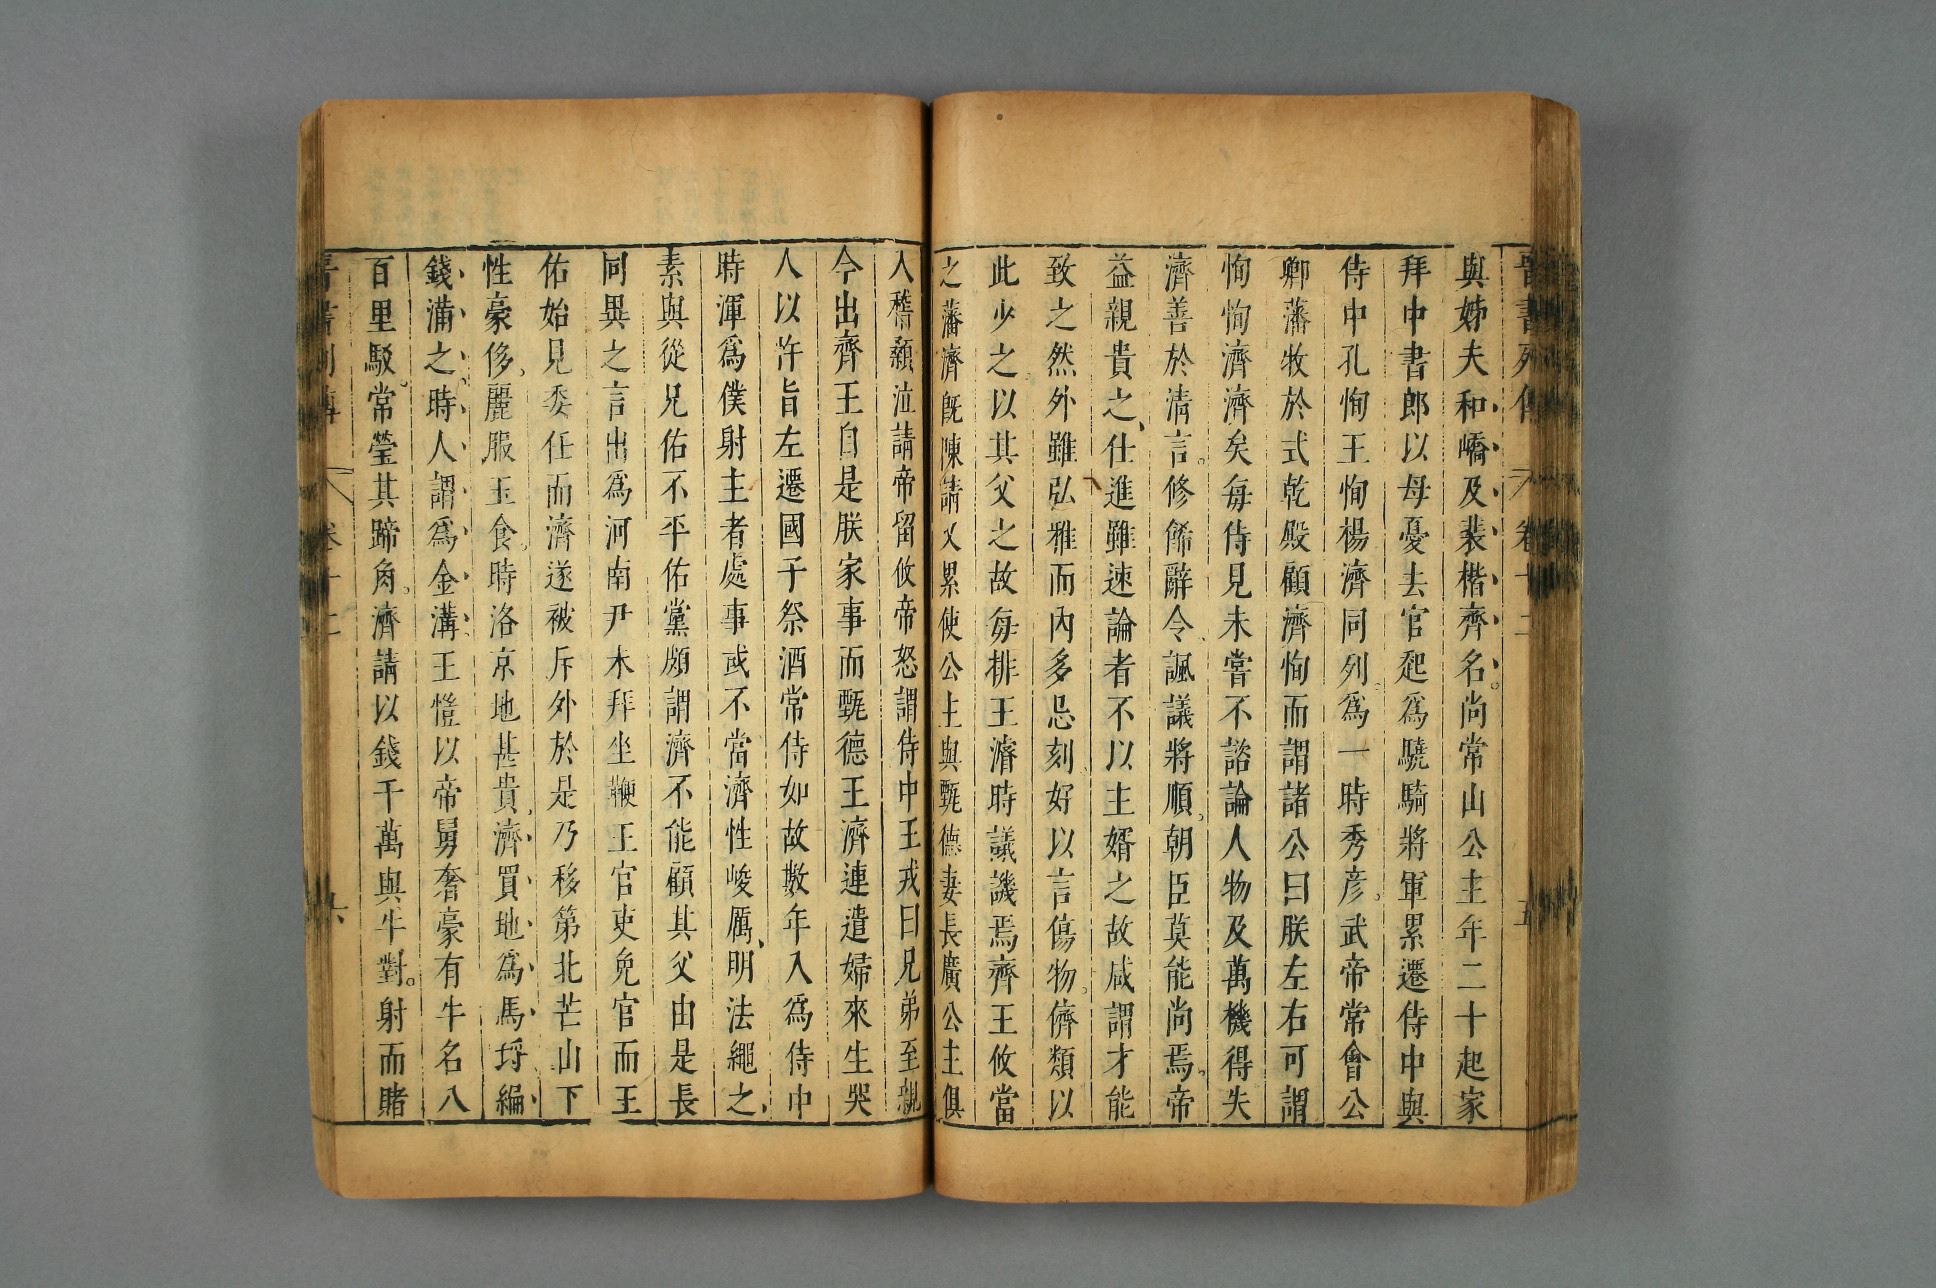 晉書列傳 卷十二 五
與姊夫和嶠及裴楷齊名尚常山公主年二十起家
拜中書郎以母憂去官起爲驍騎將軍累遷侍中與
侍中孔恂王恂楊濟同列爲一時秀彥武帝常會公
卿藩牧於式乾殿顧濟恂而謂諸公曰朕左右可謂
恂恂濟濟矣每侍見未嘗不諮論人物及萬機得失
濟善於清言修飾辭令諷議將順朝臣莫能尚焉帝
益親貴之仕進雖速論者不以主婿之故咸謂才能
致之然外雖弘雅而內多忌刻好以言傷物儕類以
此少之以其父之故每排王濬時議譏焉齊王攸當
之藩濟既陳請又累使公主與甄德妻長廣公主俱
入稽顙泣請帝留攸帝怒謂侍中王戎曰兄弟至親
今出齊王自是朕家事而甄德王濟連遣婦來生哭
人以忤旨左遷國子祭酒常侍如故數年入爲侍中
時渾爲僕射主者處事或不當濟性峻厲明法繩之
素與從兄佑不平佑黨頗謂濟不能顧其父由是長
同異之言出爲河南尹未拜坐鞭王官吏免官而王
佑始見委任而濟遂被斥外於是乃移第北芒山下
性豪侈麗服玉食時洛京地甚貴濟買地爲馬埒編
錢滿之時人謂爲金溝王愷以帝舅奢豪有牛名八
百里駁常瑩其蹄角濟請以錢千萬與牛對射而賭
晉書列傳 卷十二 六